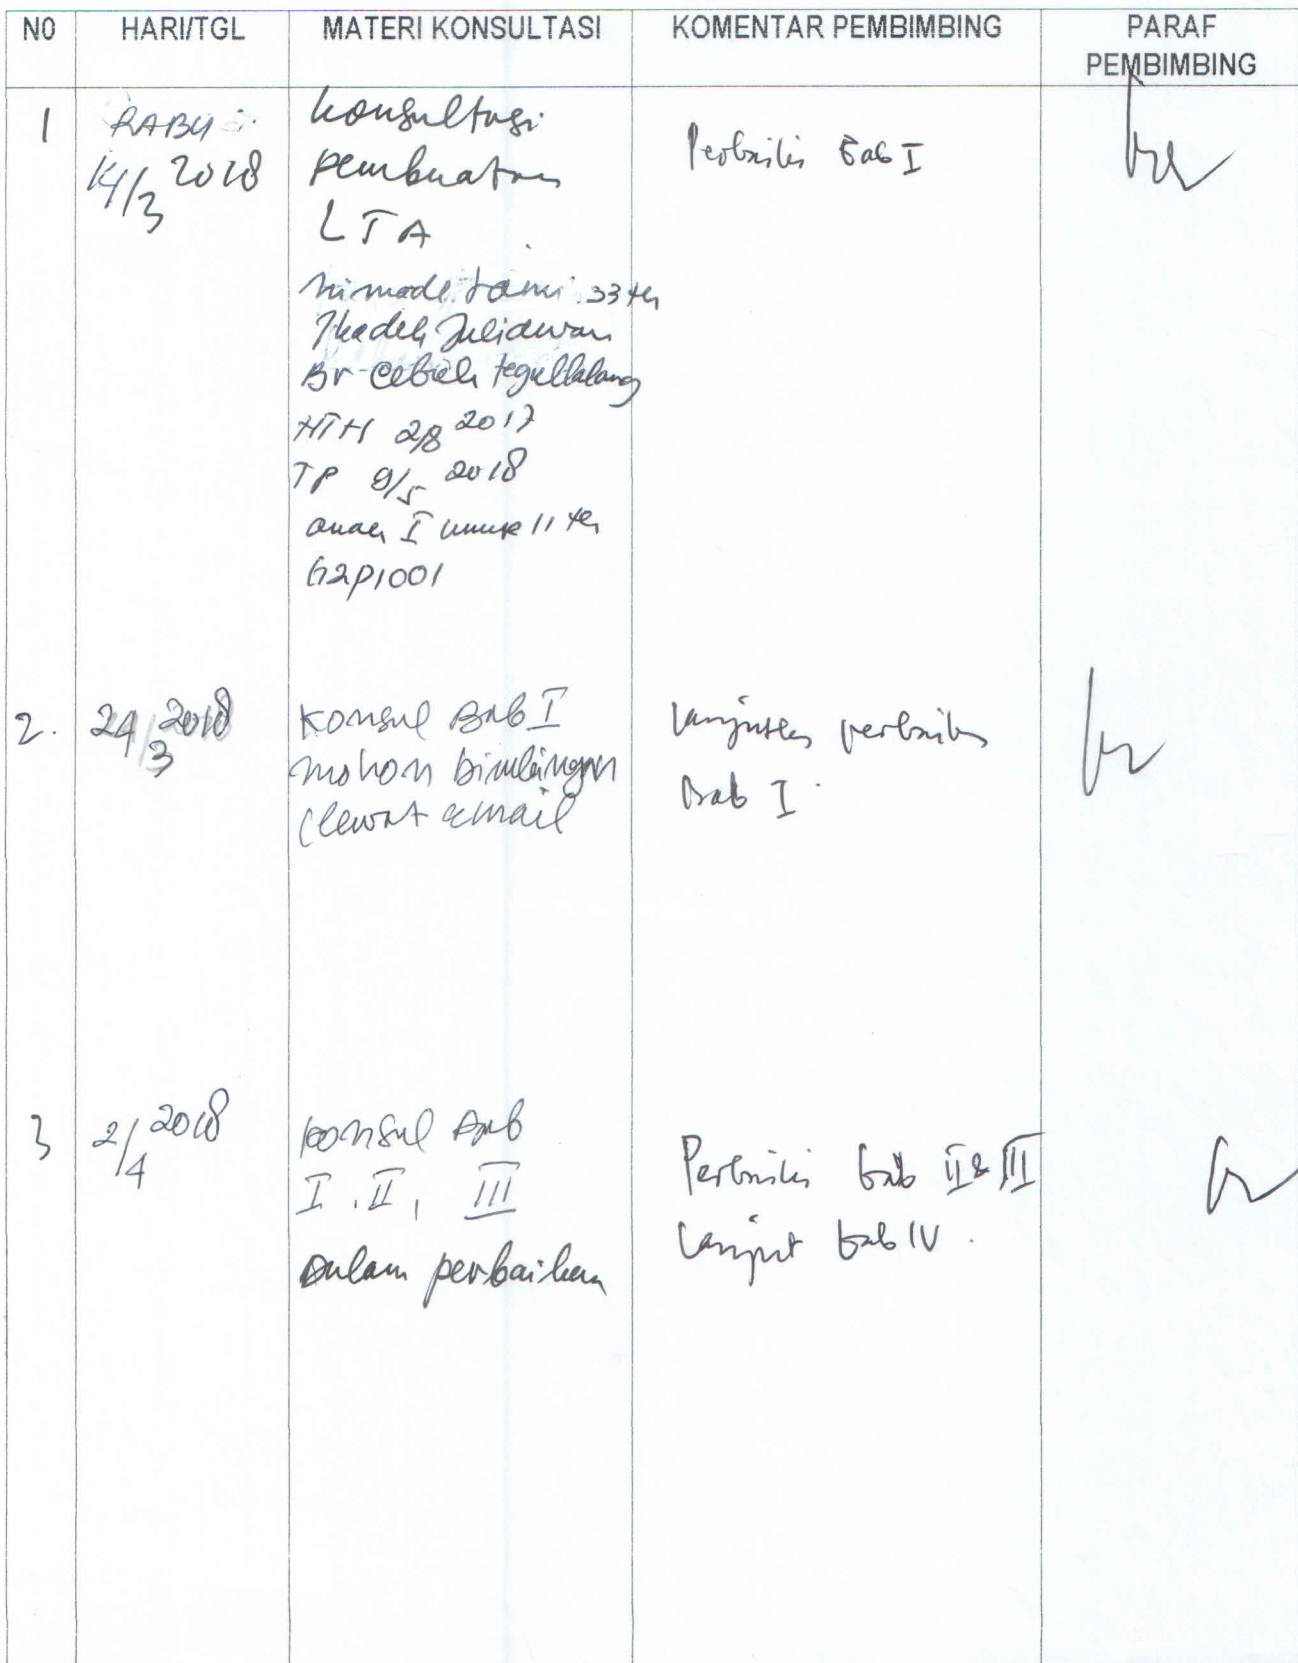 NO HARI/TGL MATERI KONSULTASI KOMENTAR PEMBIMBING PARAF PEMBIMBING
1 RABU 14/3 2018
Konsultasi
pembuatan
LTA
Ni made 33 th
Br Cebok tegallalang
HTH 2/8 2017
TP 9/5 2018
anak I umur 11 th
G2P1001
Perbaiki Bab I
2. 24/3 2018
Konsul Bab I
mohon bimbingan
(lewat email
Lanjutkan perbaikan
Bab I.
3 2/4 2018
Konsul Bab
I. II, III
Dalam perbaikan
Perbaiki bab II & III
Lanjut bab IV.